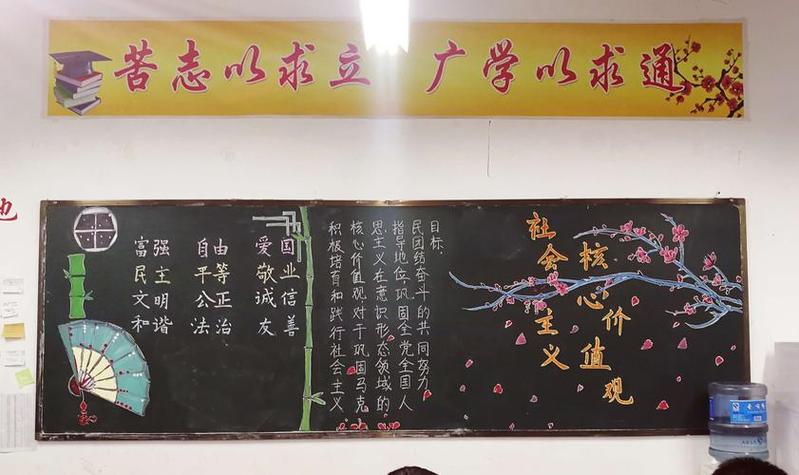 苦志以求立 广学以求通
富强
民主
文明
和谐
自由
平等
公正
法治
爱国
敬业
诚信
友善
积极培育和践行社会主义
核心价值观对于巩固马克
思主义在意识形态领域的
指导地位，巩固全党全国人
民团结奋斗的共同努力
目标，
社会主义
核心价值观